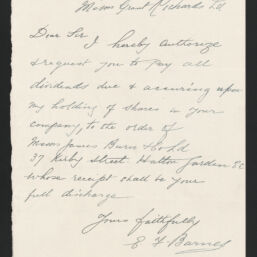 Messrs Grant Richards Ld
Dear Sir
I hereby authorize
& request you to pay all
dividends due & accruing upon
my holding of shares in your
company, to the order of
Messrs James Burn & Co Ld
37 Kirby Street Hatton Garden E.C
whose receipt shall be your
full discharge
Yours faithfully
E F Barnes